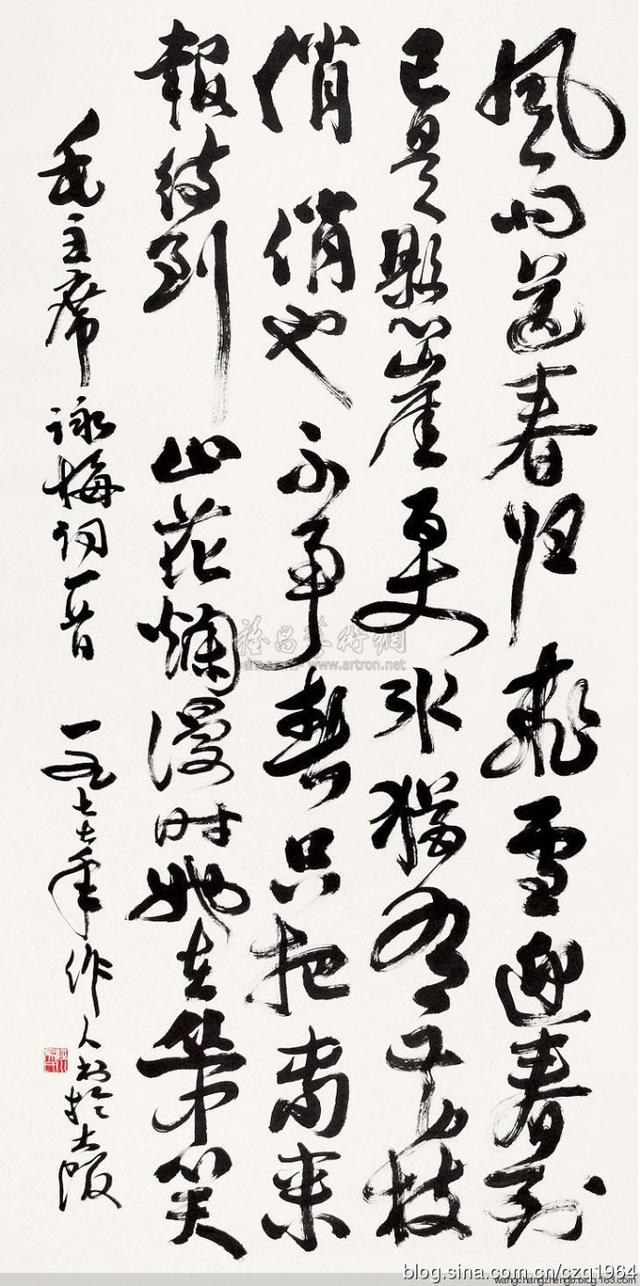 風雨送春归飛雪迎春到
已是懸崖百丈冰猶有花枝
俏 俏也不争春只把春来
報待到山花爛漫时她在丛中笑
毛主席詠梅词一首 一九七七年作人书於大阪
雅昌藝術網
www.artron.net
blog.sina.com.cn/czq1964